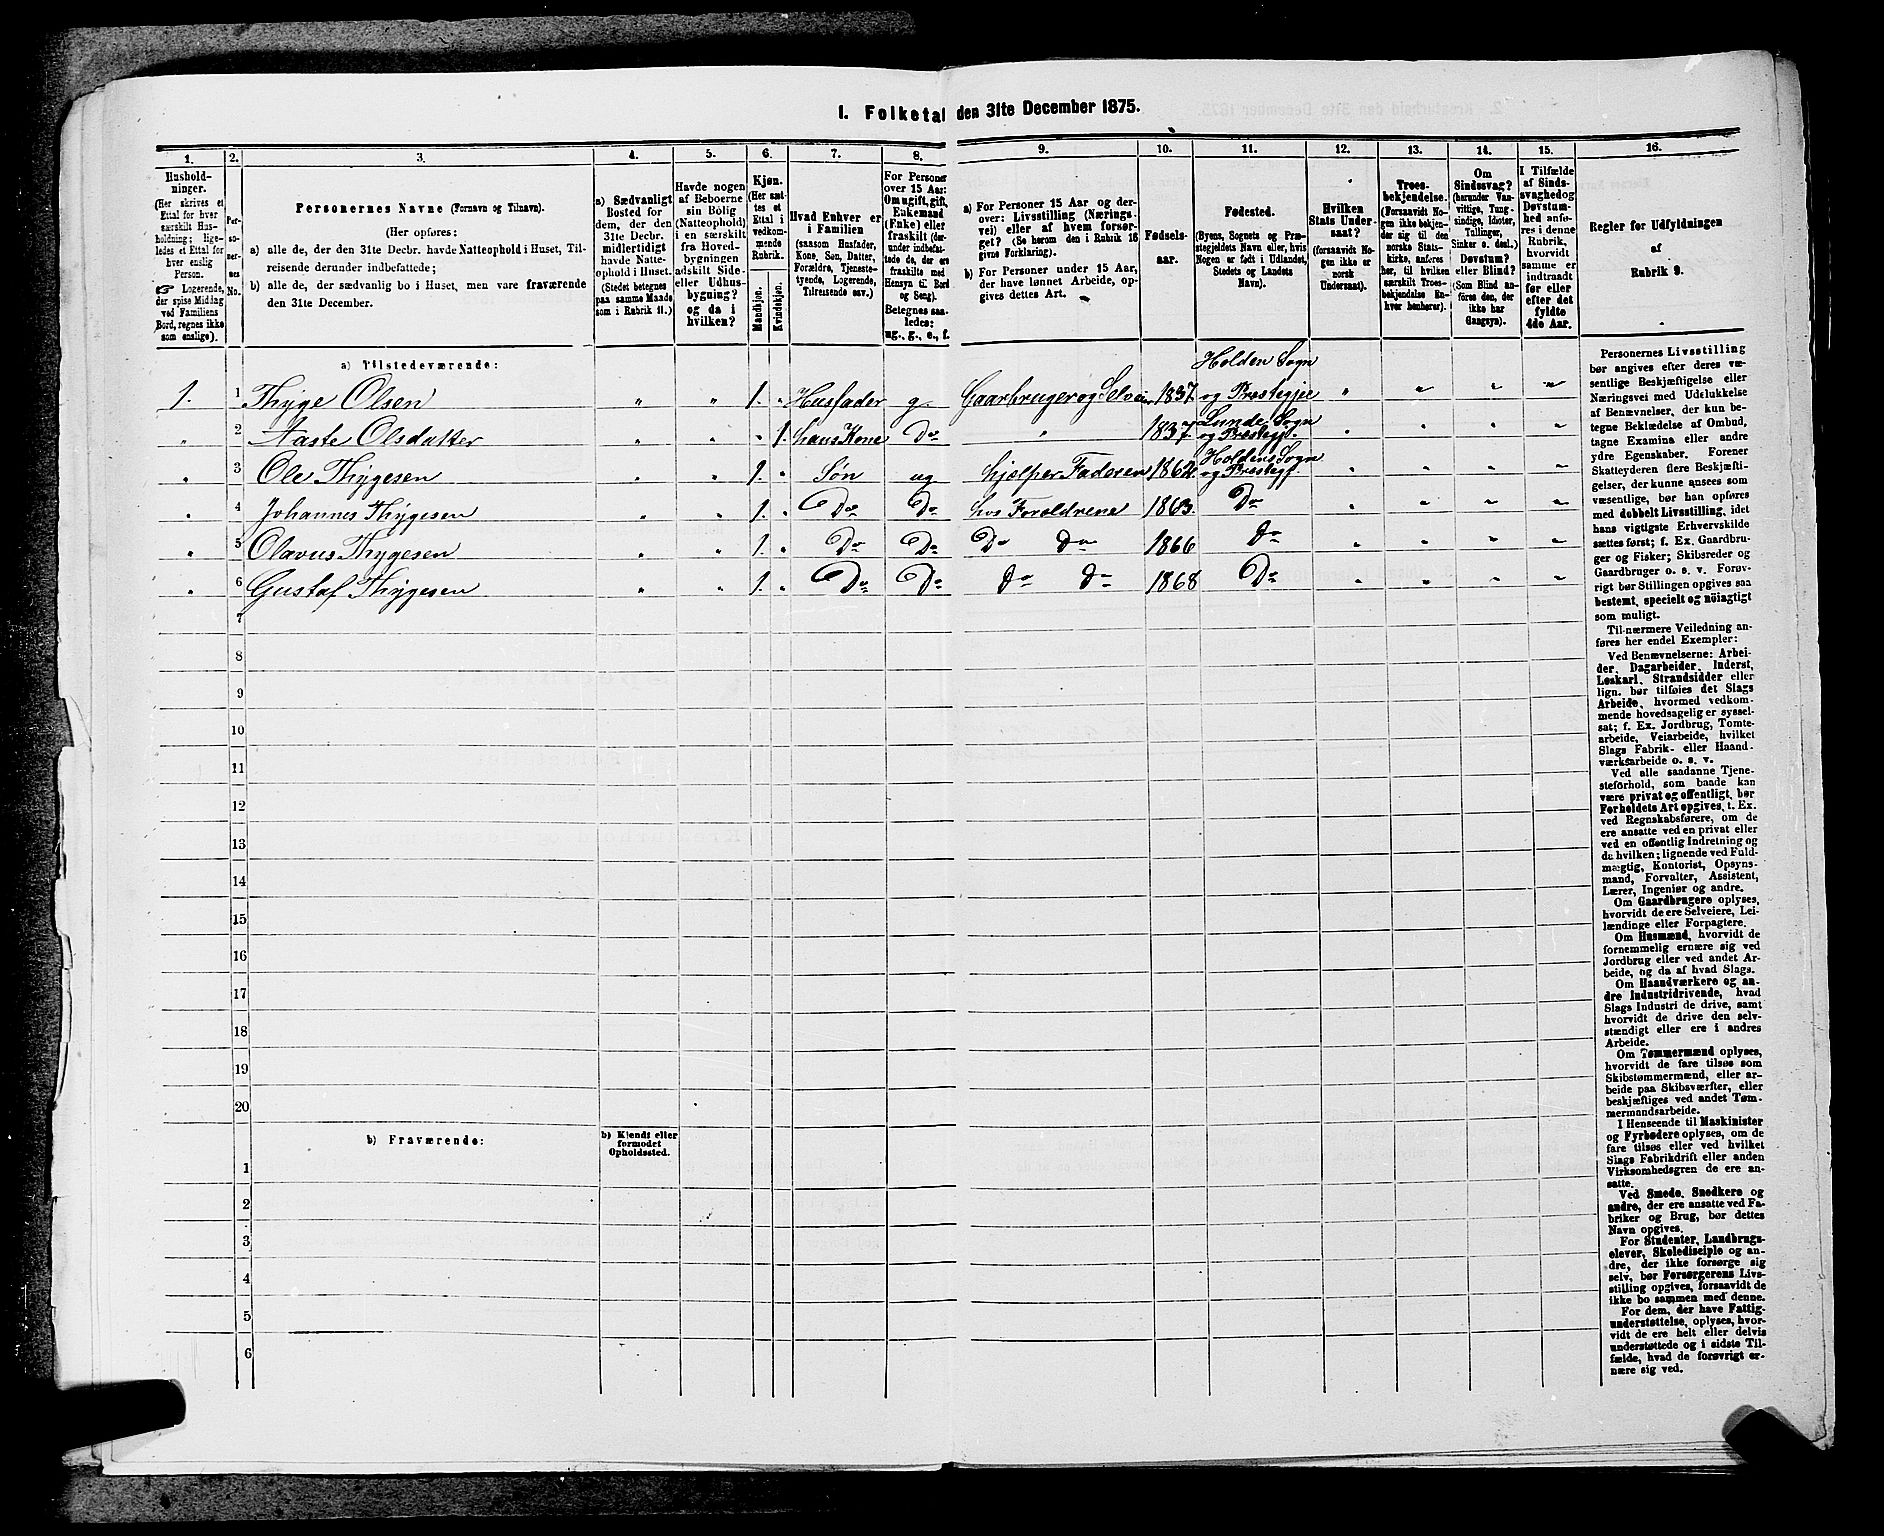 1. Folketal den 31te December 1875.
1. 2. 3. 4. 5. 6. 7. 8. 9. 10. 11. 12. 13. 14. 15. 16.
Hushold-
ninger.
(Her skrives et
Ettal for hver
særskilt Hus-
holdning; lige-
ledes et Ettal for
hver enslig
Person.
☞ Logerende,
der spise Middag
ved Familiens
Bord, regnes ikke
som enslige).
Per-
so-
ner-
nes
No.
Personernes Navne (Fornavn og Tilnavn).
(Her opføres:
a) alle de, der den 31te Decbr. havde Natteophold i Huset, Til-
reisende derunder indbefattede;
b) alle de, der sædvanlig bo i Huset, men vare fraværende
den 31te December.
a) Sædvanligt
Bosted for
dem, der den
31te Decbr.
midlertidigt
havde Natte-
ophold i Huset.
(Stedet betegnes
paa samme Maade
som i Rubrik 11.)
Havde nogen
af Beboerne
sin Bolig
(Natteophold)
i en særskilt
fra Hoved-
bygningen
adskilt Side-
eller Udhus-
bygning?
og da i
hvilken?
Kjøn.
(Her sæt-
tes et
Ettal i
vedkom-
mende
Rubrik.
Mandkjøn.
Kvindekjøn.
Hvad Enhver er
i Familien
(saasom Husfader,
Kone, Søn, Datter,
Forældre, Tjeneste-
tyende, Logerende,
Tilreisende osv.)
For Personer
over 15 Aar:
Om ugift, gift,
Enkemand
(Enke) eller
fraskilt (der-
under indbefat-
tede de, der ere
fraskilte med
Hensyn til Bord
og Seng).
Betegnes saa-
ledes:
ug., g., e., f.
a) For Personer 15 Aar og der-
over: Livsstilling (Nærings-
vei) eller af hvem forsør-
get? (Se herom den i Rubrik 16
givne Forklaring).
b) For Personer under 15 Aar,
der have lønnet Arbeide, op-
gives dettes Art.
Fødsels-
aar.
Fødested.
(Byens, Sognets og Præ-
stegjeldets Navn eller, hvis
Nogen er født i Udlandet,
Stedets og Landets
Navn).
Hvilken
Stats Under-
saat?
(forsaavidt No-
gen ikke er
norsk
Undersaat).
Troes-
bekjendelse.
(Forsaavidt No-
gen ikke bekjen-
der sig til den
norske Stats-
kirke, anføres
her, til hvilken
særskilt Troes-
bekjendelse En-
hver henhører).
Om
Sindssvag?
(herunder Van-
vittige, Tung-
sindige, Idioter,
Tullinger,
Sinker o. desl.)
Døvstum?
eller Blind?
(Som Blind an-
føres den, der
ikke har
Gangsyn).
I Tilfælde
af Sinds-
svaghed og
Døvstum-
hed anfø-
res i denne
Rubrik,
hvorvidt
samme er
indtraadt
før eller
efter det
fyldte
4de Aar.
Regler for Udfyldningen
af
Rubrik 9.
a) Tilstedeværende:
Holden Sogn
1. 1 Thyge Olsen " " 1. " Husfader g. Gaarbruger og Selvei 1837. og Prestegje " " " "
" 2 Aaste Olsdatter " " " 1. hans Kone Do " 1837. Lunde Sogn og Prestegl. " " " "
" 3 Ole Thygesen " " 1. " Søn ug hjelper Faderen 1862. Holdens Sogn og Prestegj " " " "
" 4 Johannes Thygesen " " 1. " Do Do hos Foroldrene 1863. Do " " "
" 5 Olavus Thygesen " " 1. " Do Do Do Do 1866 do " " " "
" 6 Gustaf Thygesen " " 1. " Do Do do do 1868 Do " " " "
7
8
9
10
11
12
13
14
15
16
17
18
19
20
b) Fraværende:
b) Kjendt eller
formodet
Opholdssted.
1
2
3
4
5
6
Personernes Livsstilling
bør angives efter deres væ-
sentlige Beskjæftigelse eller
Næringsvei med Udelukkelse
af Benævnelser, der kun be-
tegne Beklædelse af Ombud,
tagne Examina eller andre
ydre Egenskaber. Forener
Skatteyderen flere Beskjæfti-
gelser, der kunne ansees som
væsentlige, bør han opføres
med dobbelt Livsstilling, idet
hans vigtigste Erhvervskilde
sættes først; f. Ex. Gaardbru-
ger og Fisker; Skibsreder og
Gaardbruger o. s. v. Forøv-
rigt bør Stillingen opgives saa
bestemt, specielt og nöiagtigt
som muligt.
Til nærmere Veiledning an-
føres her endel Exempler:
Ved Benævnelserne: Arbei-
der, Dagarbeider, Inderst,
Løskarl, Strandsidder eller
lign. bør tilføies det Slags
Arbeide, hvormed vedkom-
mende hovedsagelig er syssel-
sat; f. Ex. Jordbrug, Tomte-
arbeide, Veiarbeide, hvilket
Slags Fabrik- eller Haand-
værksarbeide o. s. v.
Ved alle saadanne Tjene-
steforhold, som baade kan
være privat og offentligt, bør
Forholdets Art opgives, t. Ex.
ved Regnskabsførere, om de
ere ansatte ved en privat eller
ved en offentlig Indretning og
da hvilken; lignende ved Fuld-
mægtig, Kontorist, Opsyns-
mand, Forvalter, Assistent,
Lærer, Ingeniør og andre.
Om Gaardbrugere oplyses,
hvorvidt de ere Selveiere, Lei-
lændinge eller Forpagtere.
Om Husmænd, hvorvidt de
fornemmelig ernære sig ved
Jordbrug eller ved andet Ar-
beide, og da af hvad Slags.
Om Haandværkere og an-
dre Industridrivende, hvad
Slags Industri de drive, samt
hvorvidt de drive den selv-
stændigt eller ere i andres
Arbeide.
Om Tømmermænd oplyses,
hvorvidt de fare tilsøs som
Skibstømmermænd, eller ar-
beide paa Skibsværfter, eller
beskjæftiges ved andet Tøm-
mermandsarbeide.
I Henseende til Maskinister
og Fyrbødere oplyses, om de
fare tilsøs eller ved hvilket
Slags Fabrikdrift eller anden
Virksomhedsgren de ere an-
satte.
Ved Smede, Snedkere og
andre, der ere ansatte ved Fa-
briker og Brug, bør dettes
Navn opgives.
For Studenter, Landbrugs-
elever, Skoledisciple og an-
dre, der ikke forsørge sig
selv, bør Forsørgerens Livs-
stilling opgives, forsaavidt de
ikke bo sammen med denne.
For dem, der have Fattig-
understøttelse, oplyses, hvor-
vidt de ere helt eller delvis
understøttede og i sidste Til-
fælde, hvad de forøvrigt er-
nære sig ved.